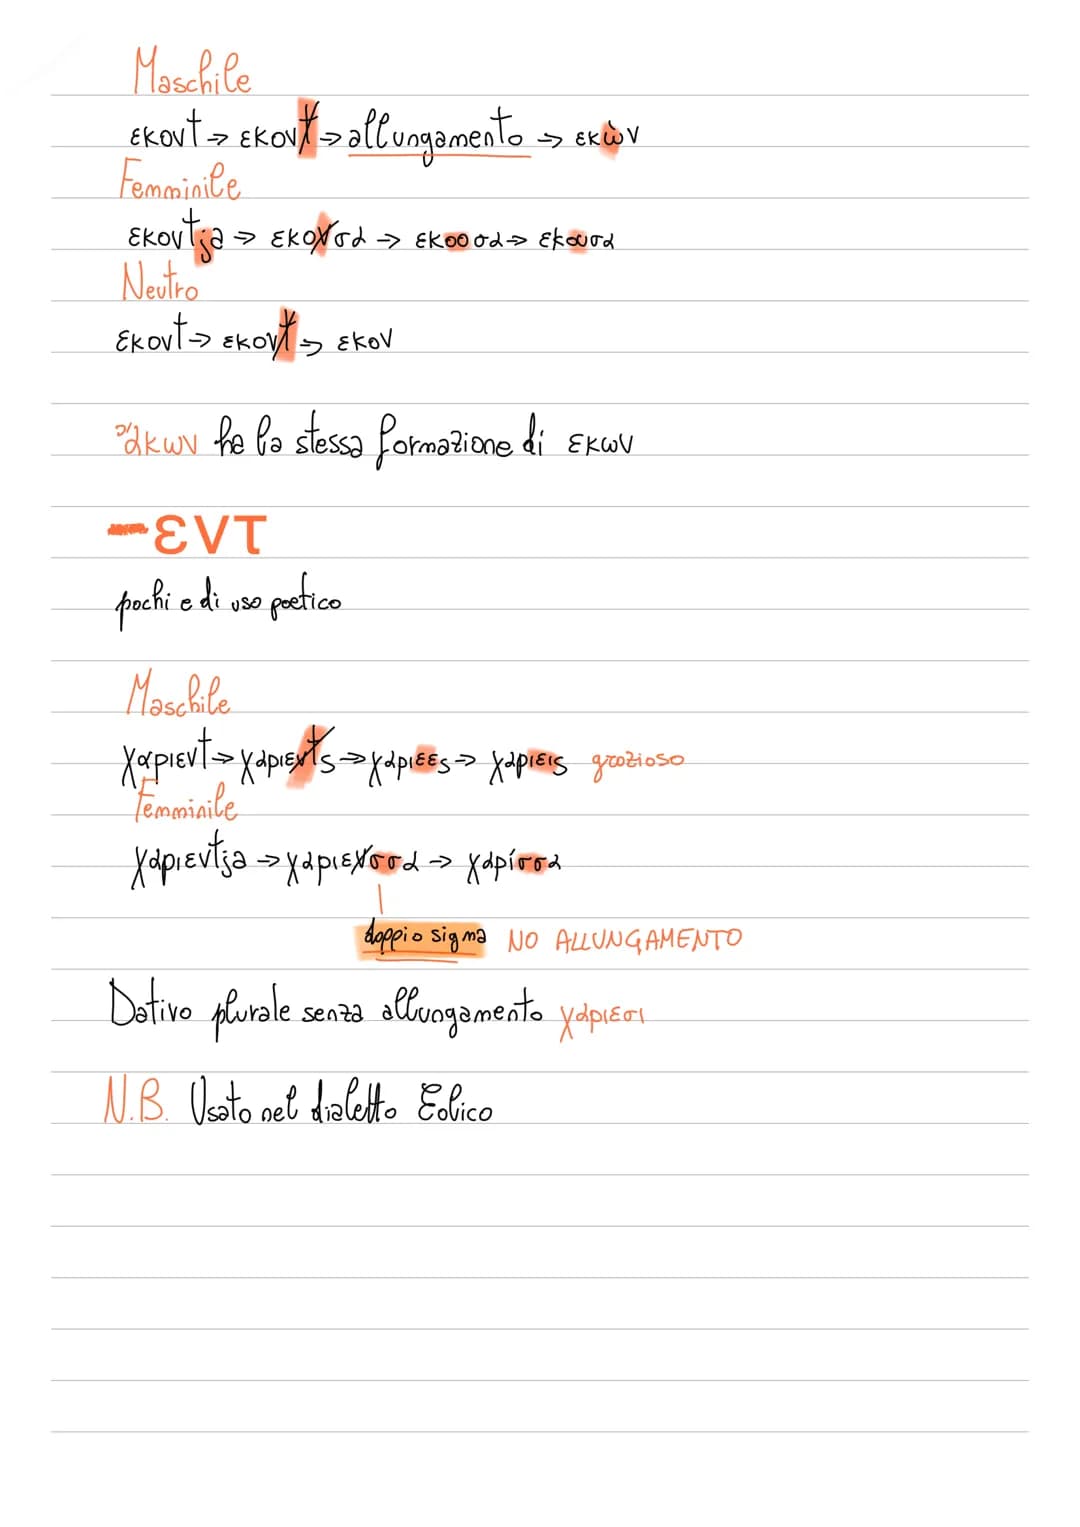 Maschile
εκοντ → εκοντ → allungamento → εκὼν
Femminile
εκοντja → εκονσα → εκοοσα → εκουσα
Neutro
εκοντ → εκοντ → εκον
ἄκων ha la stessa formazione di εκων
-εντ
pochi e di uso poetico
Maschile
χαριεντ → χαριεντs → χαριεες → χαριεις grazioso
Femminile
χαριεντja → χαριενσσα → χαρίσσα
doppio sigma NO ALLUNGAMENTO
Dativo plurale senza allungamento χαριεσι
N.B. Usato nel dialetto Eolico